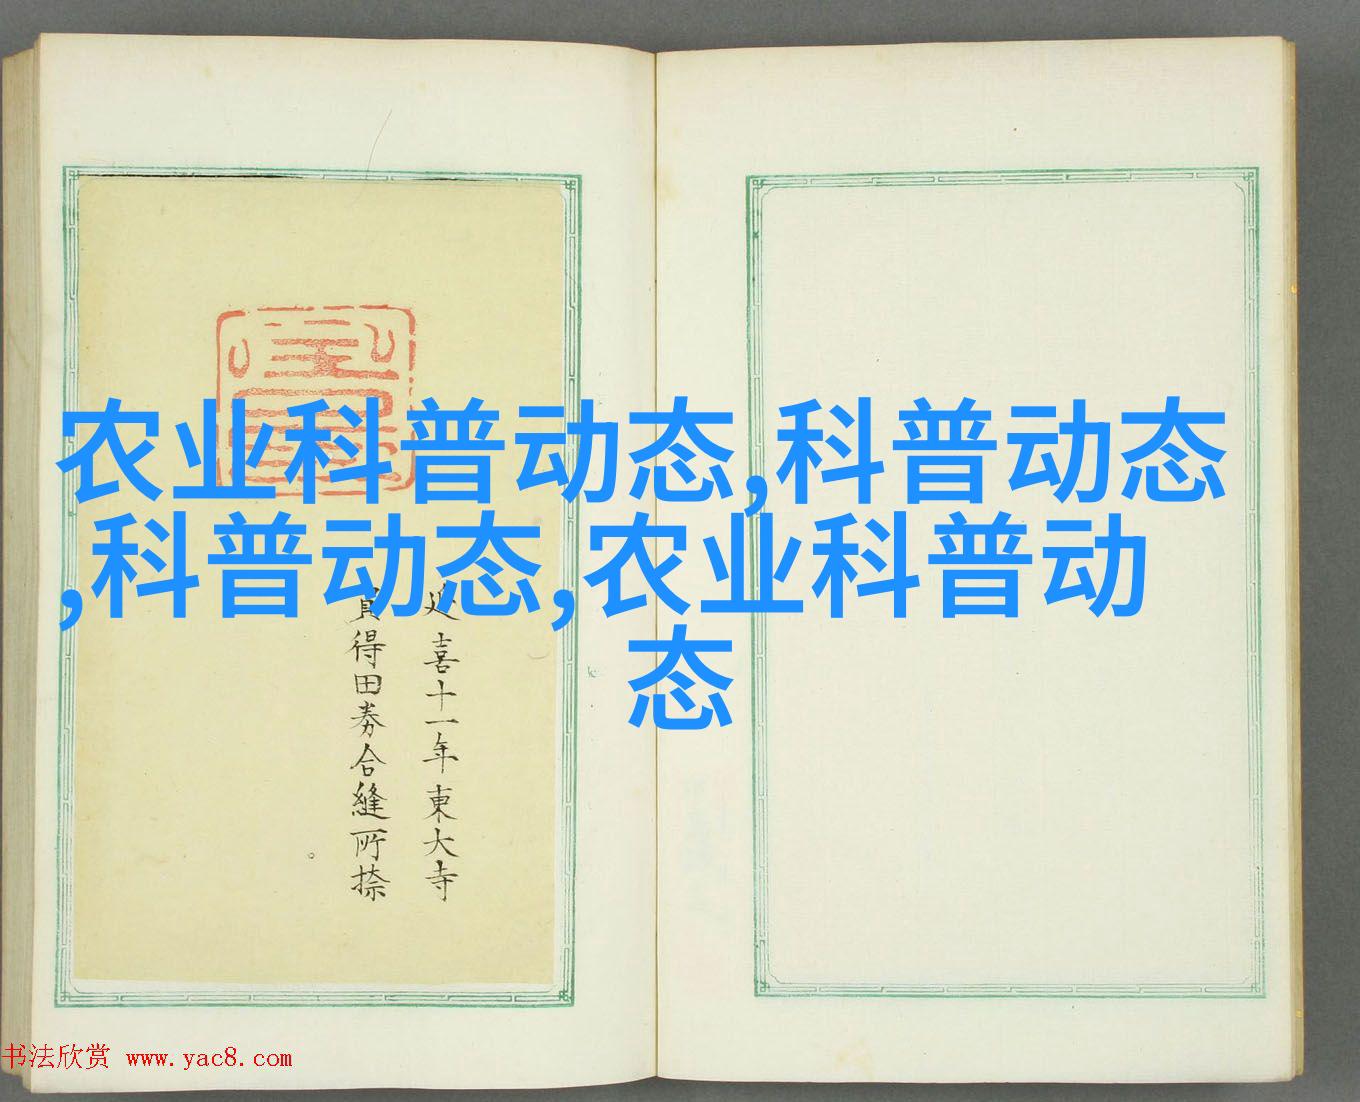 农业科普动态,科普动态
,科普动态,农业科普动
态
延喜十一年東大寺
貢得田券合縫所捺
书法欣赏 www.yac8.com